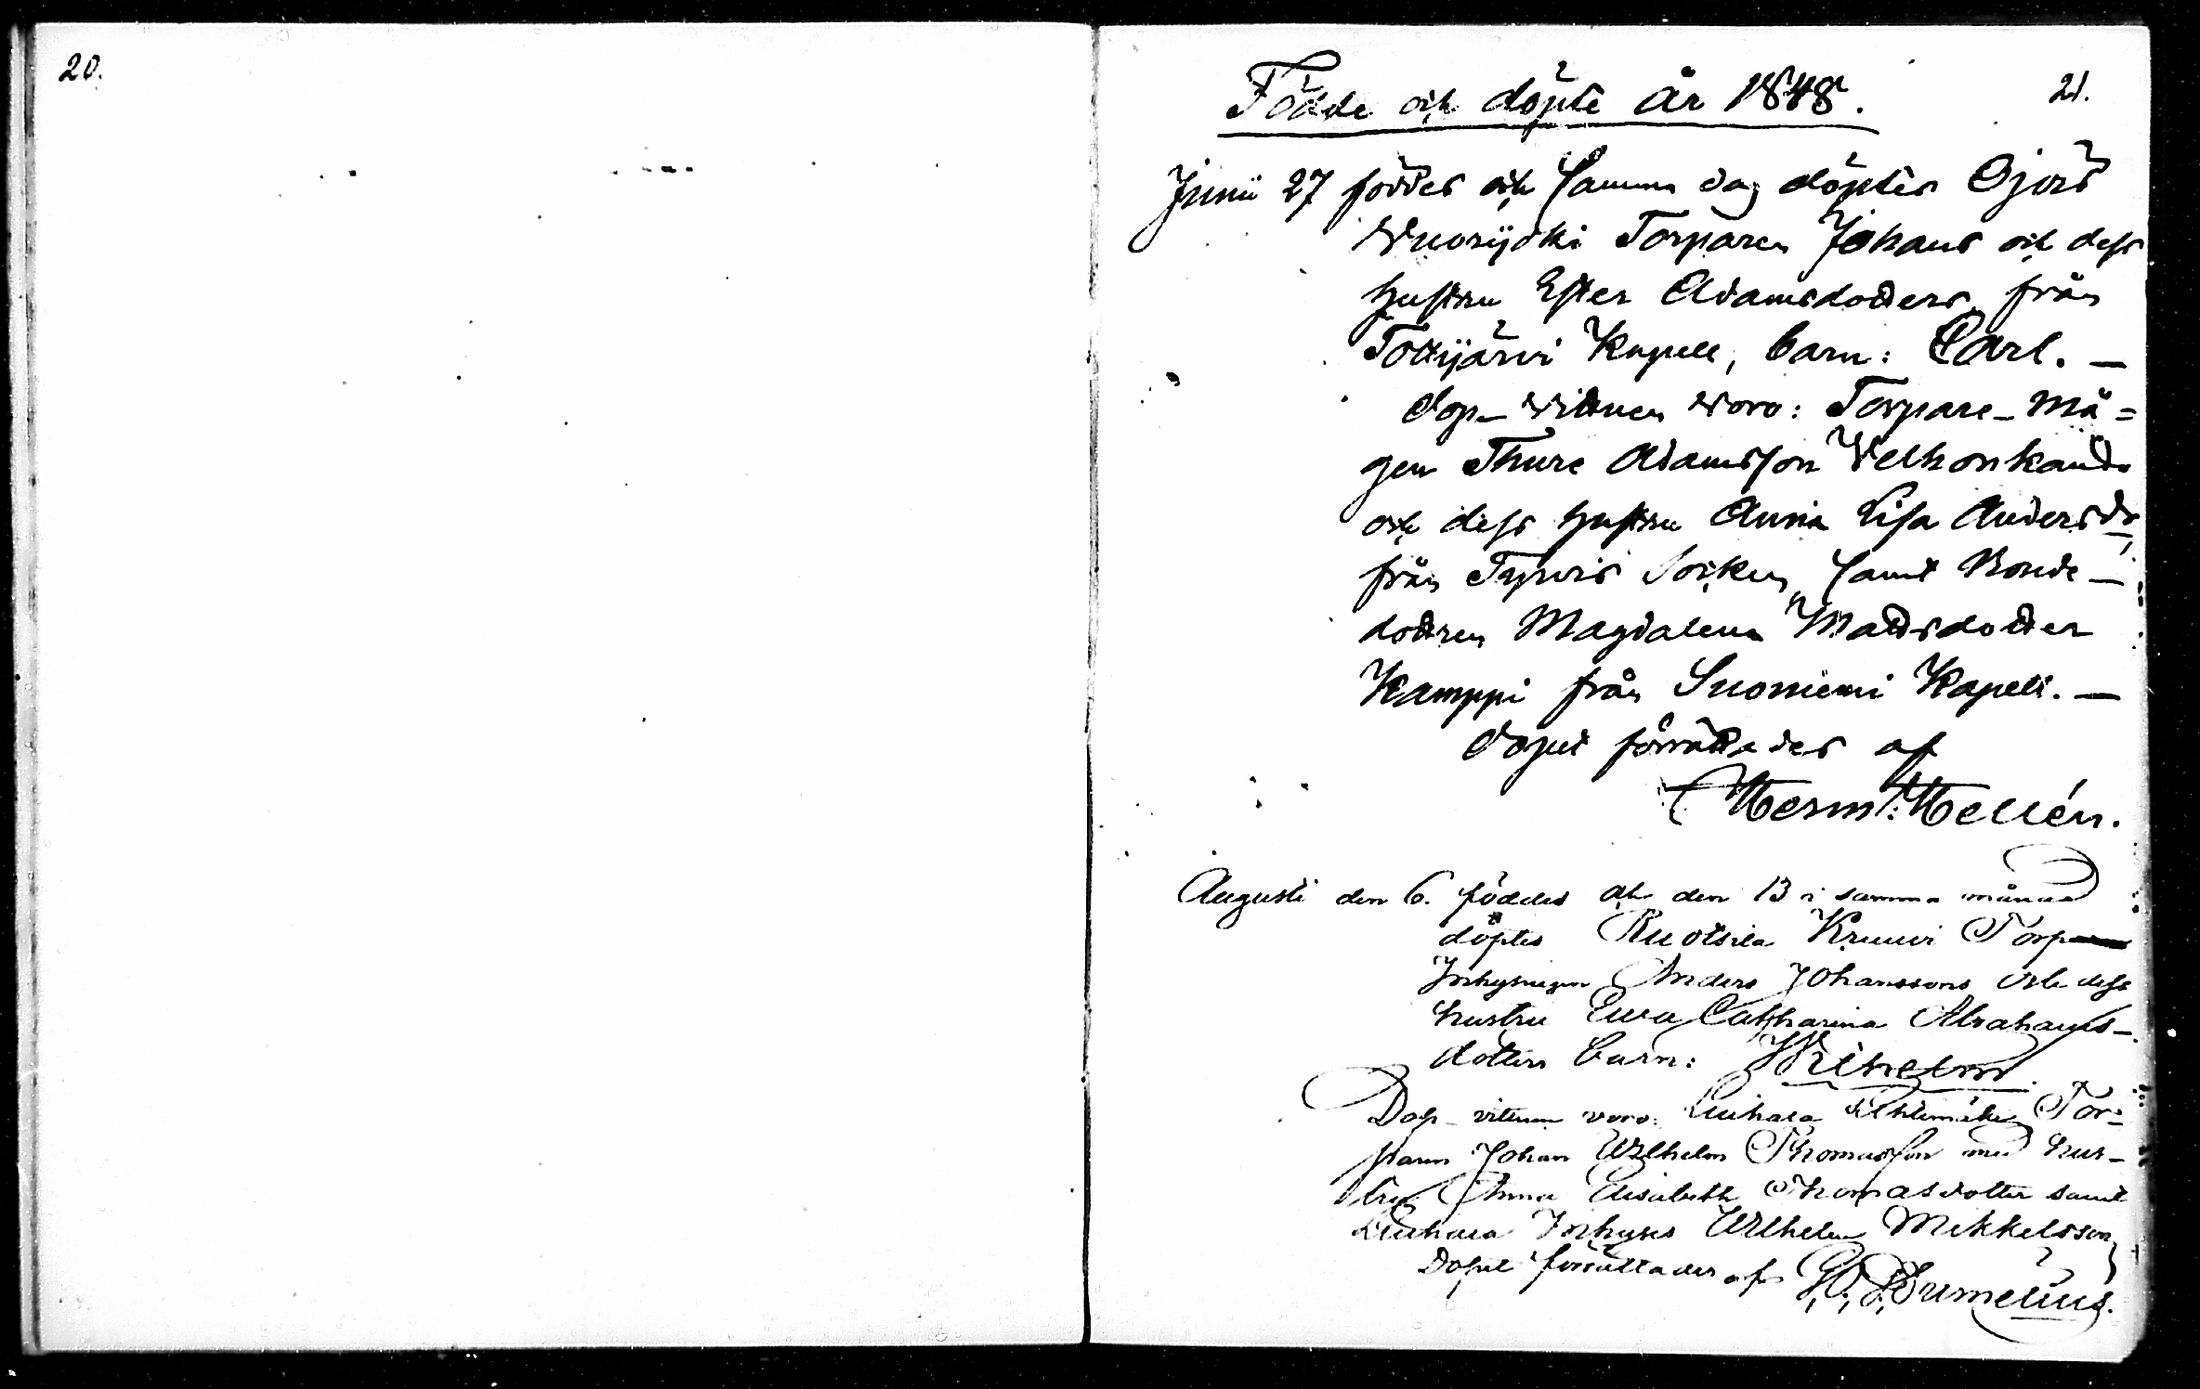 20.
21.
Födde och döpte år 1848.
Junii 27 föddes och samma dag döptes
Torparen Johans och dess
hustru Ester Adamsdotters från
Tottijärvi Kapell, barn: Carl. —
Dop-vittnen woro: Torpare-Må=
gen Thure Adamsson
och dess hustru Anna Lisa Andersdr
från Tyrvis Socken, samt Bonde-
dottren Magdalena Mattsdotter
Kamppi från Suoniemi Kapell. —
Dopet förrättades af
Herm: Hellén.
Augusti den 6. föddes och den 13 i samma månad
döptes Ruotsila Kruuvi Torp
Inhysingen Anders Johanssons och dess
hustru Ewa Catharina Abrahams-
dotters barn: Wilhelm.
Dop-vittnen voro: Tor-
paren Johan Wilhelm Thomasson med hus-
tru Anna Elisabeth Thomasdotter samt
Inhyses Wilhelm Mikkelsson
Dopet förrättades af